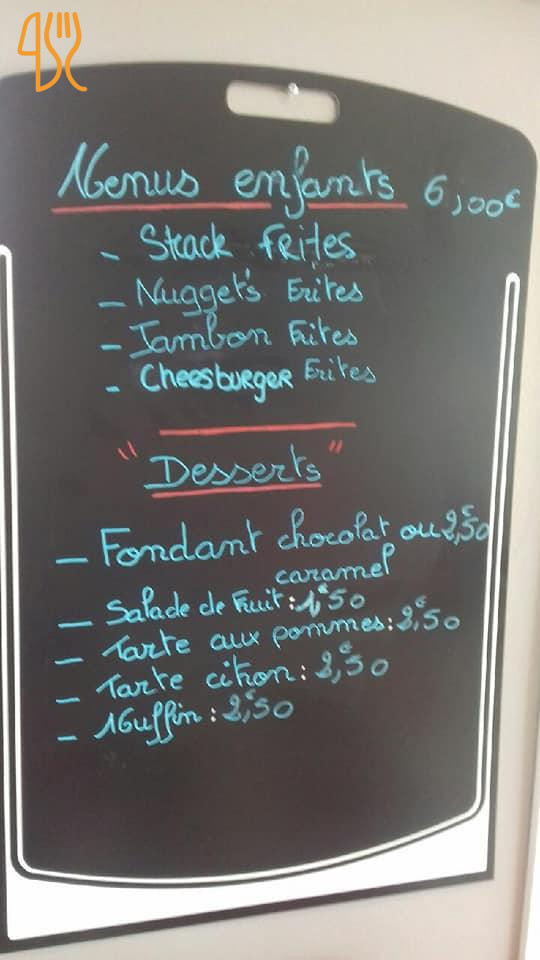 Menus enfants 6,00€
- Steack FRites
- Nugget's Frites
- Jambon Frites
- Cheesburger Frites
"Desserts"
- Fondant chocolat ou 2,€50
caramel
- Salade de Fruit : 1,€50
- Tarte aux pommes : 2,€50
- Tarte citron : 2,€50
- Muffin : 2,€50